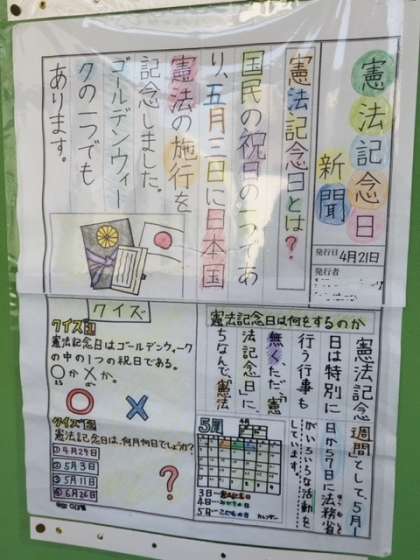 憲法記念日
新聞
発行日 4月21日
発行者
憲法記念日とは?
国民の祝日の一つであ
り、五月三日に日本国
憲法の施行を
記念しました。
ゴールデンウィー
クの一つでも
あります。
憲法記念日は何をするのか
憲法記念
日は特別に
行う行事も
無く、ただ「憲
法記念日」に
ちなんで、「憲法
週間」として、5月1
日から7日に法務省
がいろいろな活動を
しています。
5月
3日
4日
5日 こどもの日
カレンダー
クイズ
クイズ1
憲法記念日はゴールデンウィーク
の中の1つの祝日である。
○か×か。
○ ×
クイズ2
憲法記念日は、何月何日でしょうか?
①4月29日
②5月3日
③5月11日
④6月26日
?